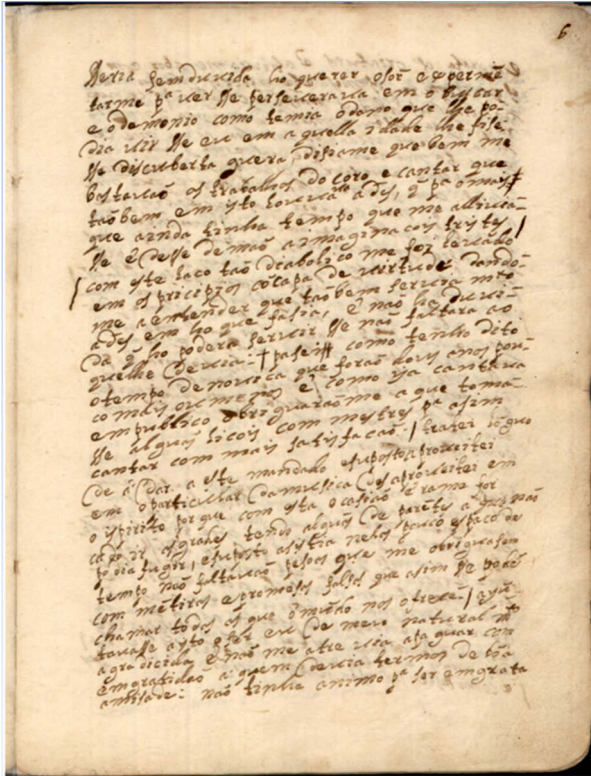 6
seria sem duvida ho querer, o sor̃ e experimẽ
tarme pª ver se perseverava em o buscar
e o demonio como temia o dano que lhe po
dia vir se eu em aquella idade lhe fise
se descuberta guera, disiame que bem me
bastavaõ os trabalhos do coro e cantar que
taõbem em isto louvava a ds̃, q̃ pª o mais
que ainda tinha tempo que me alivia
se e desse de maõ a imaginacois tristes
com este laço taõ diabolico me fez cercado
em os pricipios o capa de virtude dando
me a entender que taõbem servia mto
a ds̃ em ho que fasia, e naõ ha duvi
da q̃ ho podera servir se naõ faltara ao
que lhe devia: pasei como tenho dito
o tempo de novica que foraõ dous anos pou
co mais ou menos e como ja cantava
em publico obrigaraõme a que toma
se algũas licois com mestres pª asim
cantar com mais satisfacaõ / tratei logo
de dar a este mandado e suposto aproveitei
em o particular da musica desaproveitei em
o ispirito por que com esta ocasiaõ era me for
ir as grades, tendo algũs de parẽtes a q̃ naõ
podia fugir, e suposto asistia nelas pouco espaço de
tempo naõ faltavaõ pesoas que me obrigasem
com mẽtiras e promesas falsas que asim se podẽ
chamar todas as que o mundo nos oferece / aju
tavase a isto o ser eu de meu natural mto
agradicida e naõ me atrevia a pagar com
emgratidaõ a quem devia termos de boã
amisade: naõ tinha animo pª ser emgrata